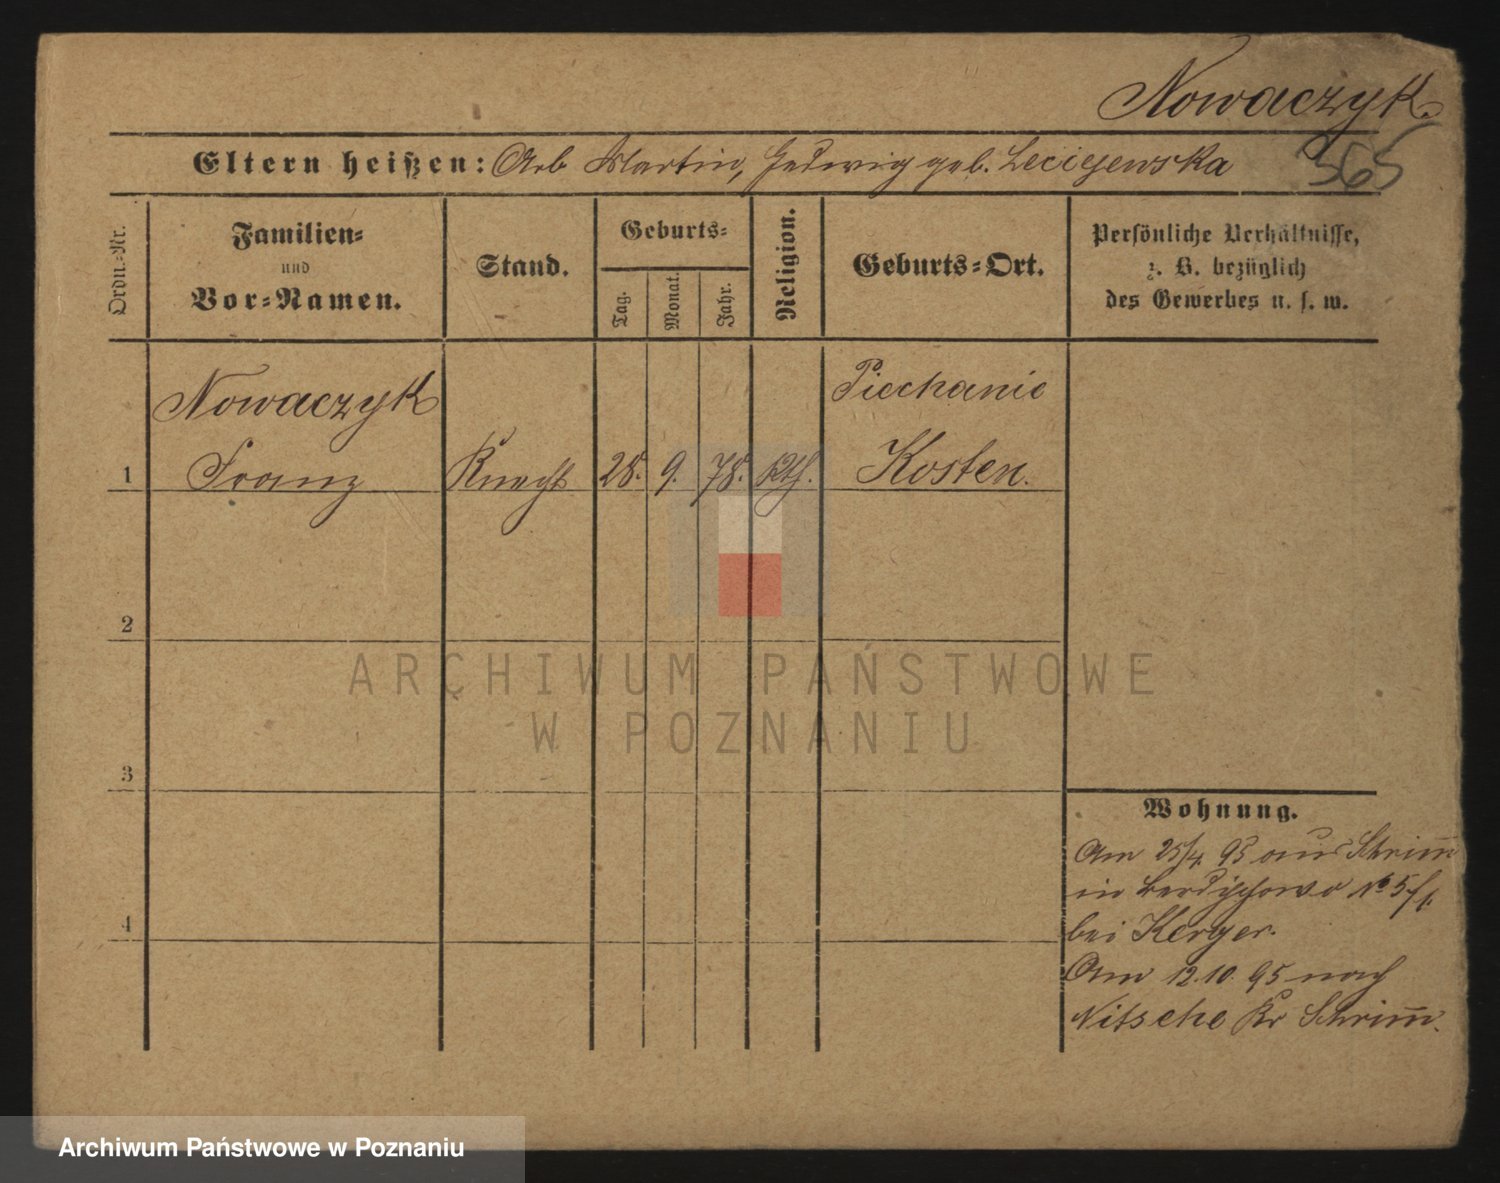 Nowaczyk.
565
Eltern heißen: Arb Martin, Hedwig geb. Leciejewska
Ordn.-Nr.
Familien-
und
Vor-Namen.
Stand.
Geburts-
Tag.
Monat.
Jahr.
Religion.
Geburts-Ort.
Persönliche Verhältnisse,
z. B. bezüglich
des Gewerbes u. s. w.
Nowaczyk
Piechanie
1 Franz Knecht 28. 9. 78. kth. Kosten.
2
3
4
ARCHIWUM PAŃSTWOWE
W POZNANIU
Wohnung.
Am 25/4 95 aus Schrimm
in Berdychowo No 5
bei Kerger.
Am 12.10.95 nach
Nitsche Kr Schrimm.
Archiwum Państwowe w Poznaniu